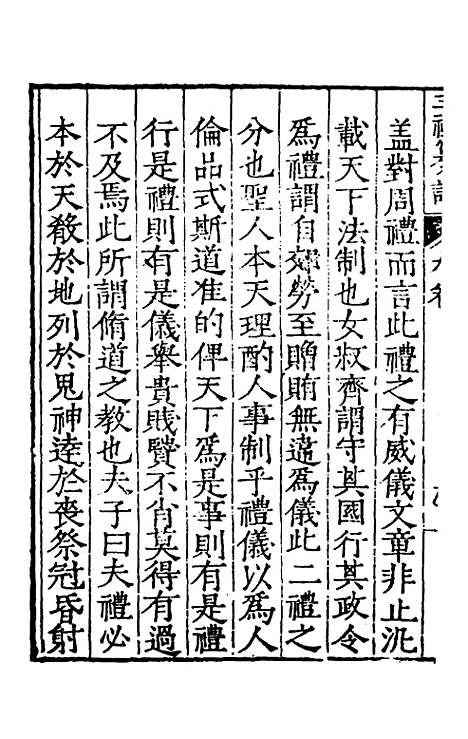 盖對周禮而言此禮之有威儀文章非止汎
載天下法制也女叔齊謂守其國行其政令
爲禮謂自郊勞至贈賄無違爲儀此二禮之
分也聖人本天理酌人事制乎禮儀以爲人
倫品式斯道准的俾天下爲是事則有是禮
行是禮則有是儀舉貴賤賢不肖莫得有過
不及焉此所謂脩道之教也夫子曰夫禮必
本於天殽於地列於鬼神逹於喪祭冠昏射